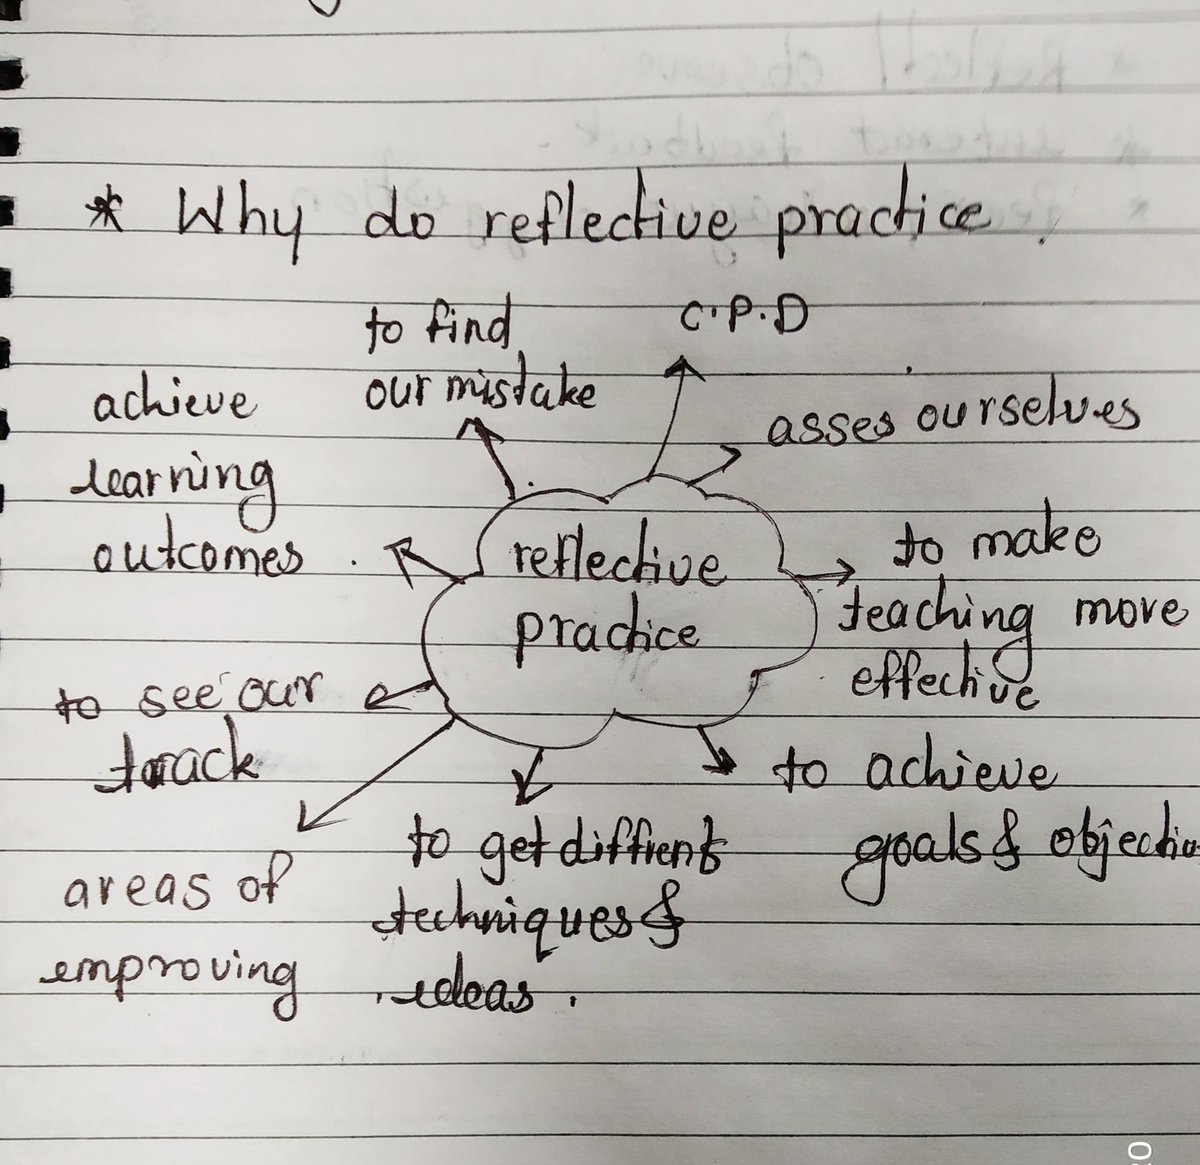 * Why do reflective practice
to find
our mistake
C.P.D
asses ourselves
achieve
learning
outcomes .
reflective
practice
to make
teaching more
effective
to see our
track
to achieve
goals &
areas of
emproving
to get diffrent
techniques &
ideas .